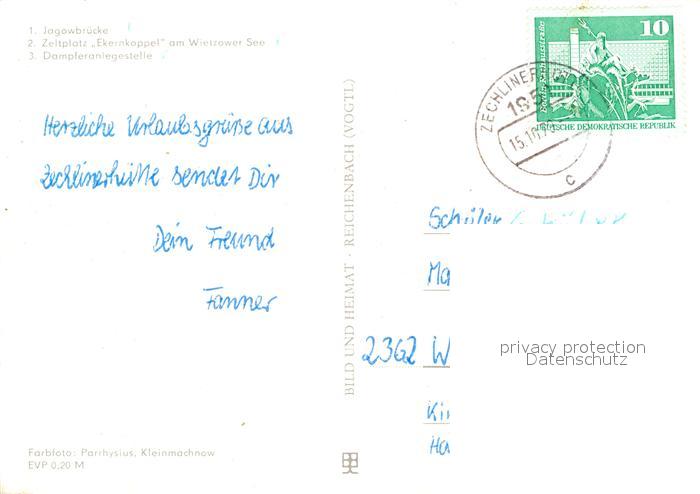 1. Jagowbrücke
2. Zeltplatz „Ekernkoppel" am Wietzower See
3. Dampferanlegestelle
10
DEUTSCHE DEMOKRATISCHE REPUBLIK
ZECHLINER
195
15.10.
c
Herzliche Urlaubsgrüße aus
Zechlinerhütte sendet Dir
Dein Freund
Fanner
BILD UND HEIMAT · REICHENBACH (VOGTL)
Schüler
Ma
2362 W
privacy protection
Datenschutz
Ha
Farbfoto: Parrhysius, Kleinmachnow
EVP 0,20 M